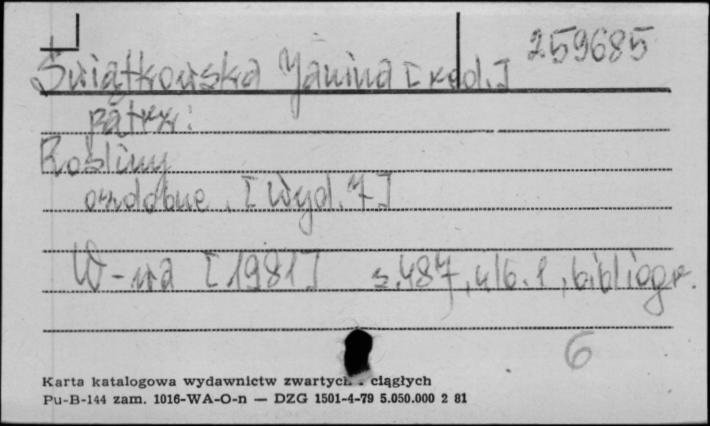 259685
Świątkowska Janina [red.]
patrz:
Rośliny
ozdobne. [Wyd. 7]
W-wa [1981] s. 487, nlb. 1, bibliogr.
6
Karta katalogowa wydawnictw zwartych ciągłych
Pu-B-144 zam. 1016-WA-O-n — DZG 1501-4-79 5.050.000 2 81